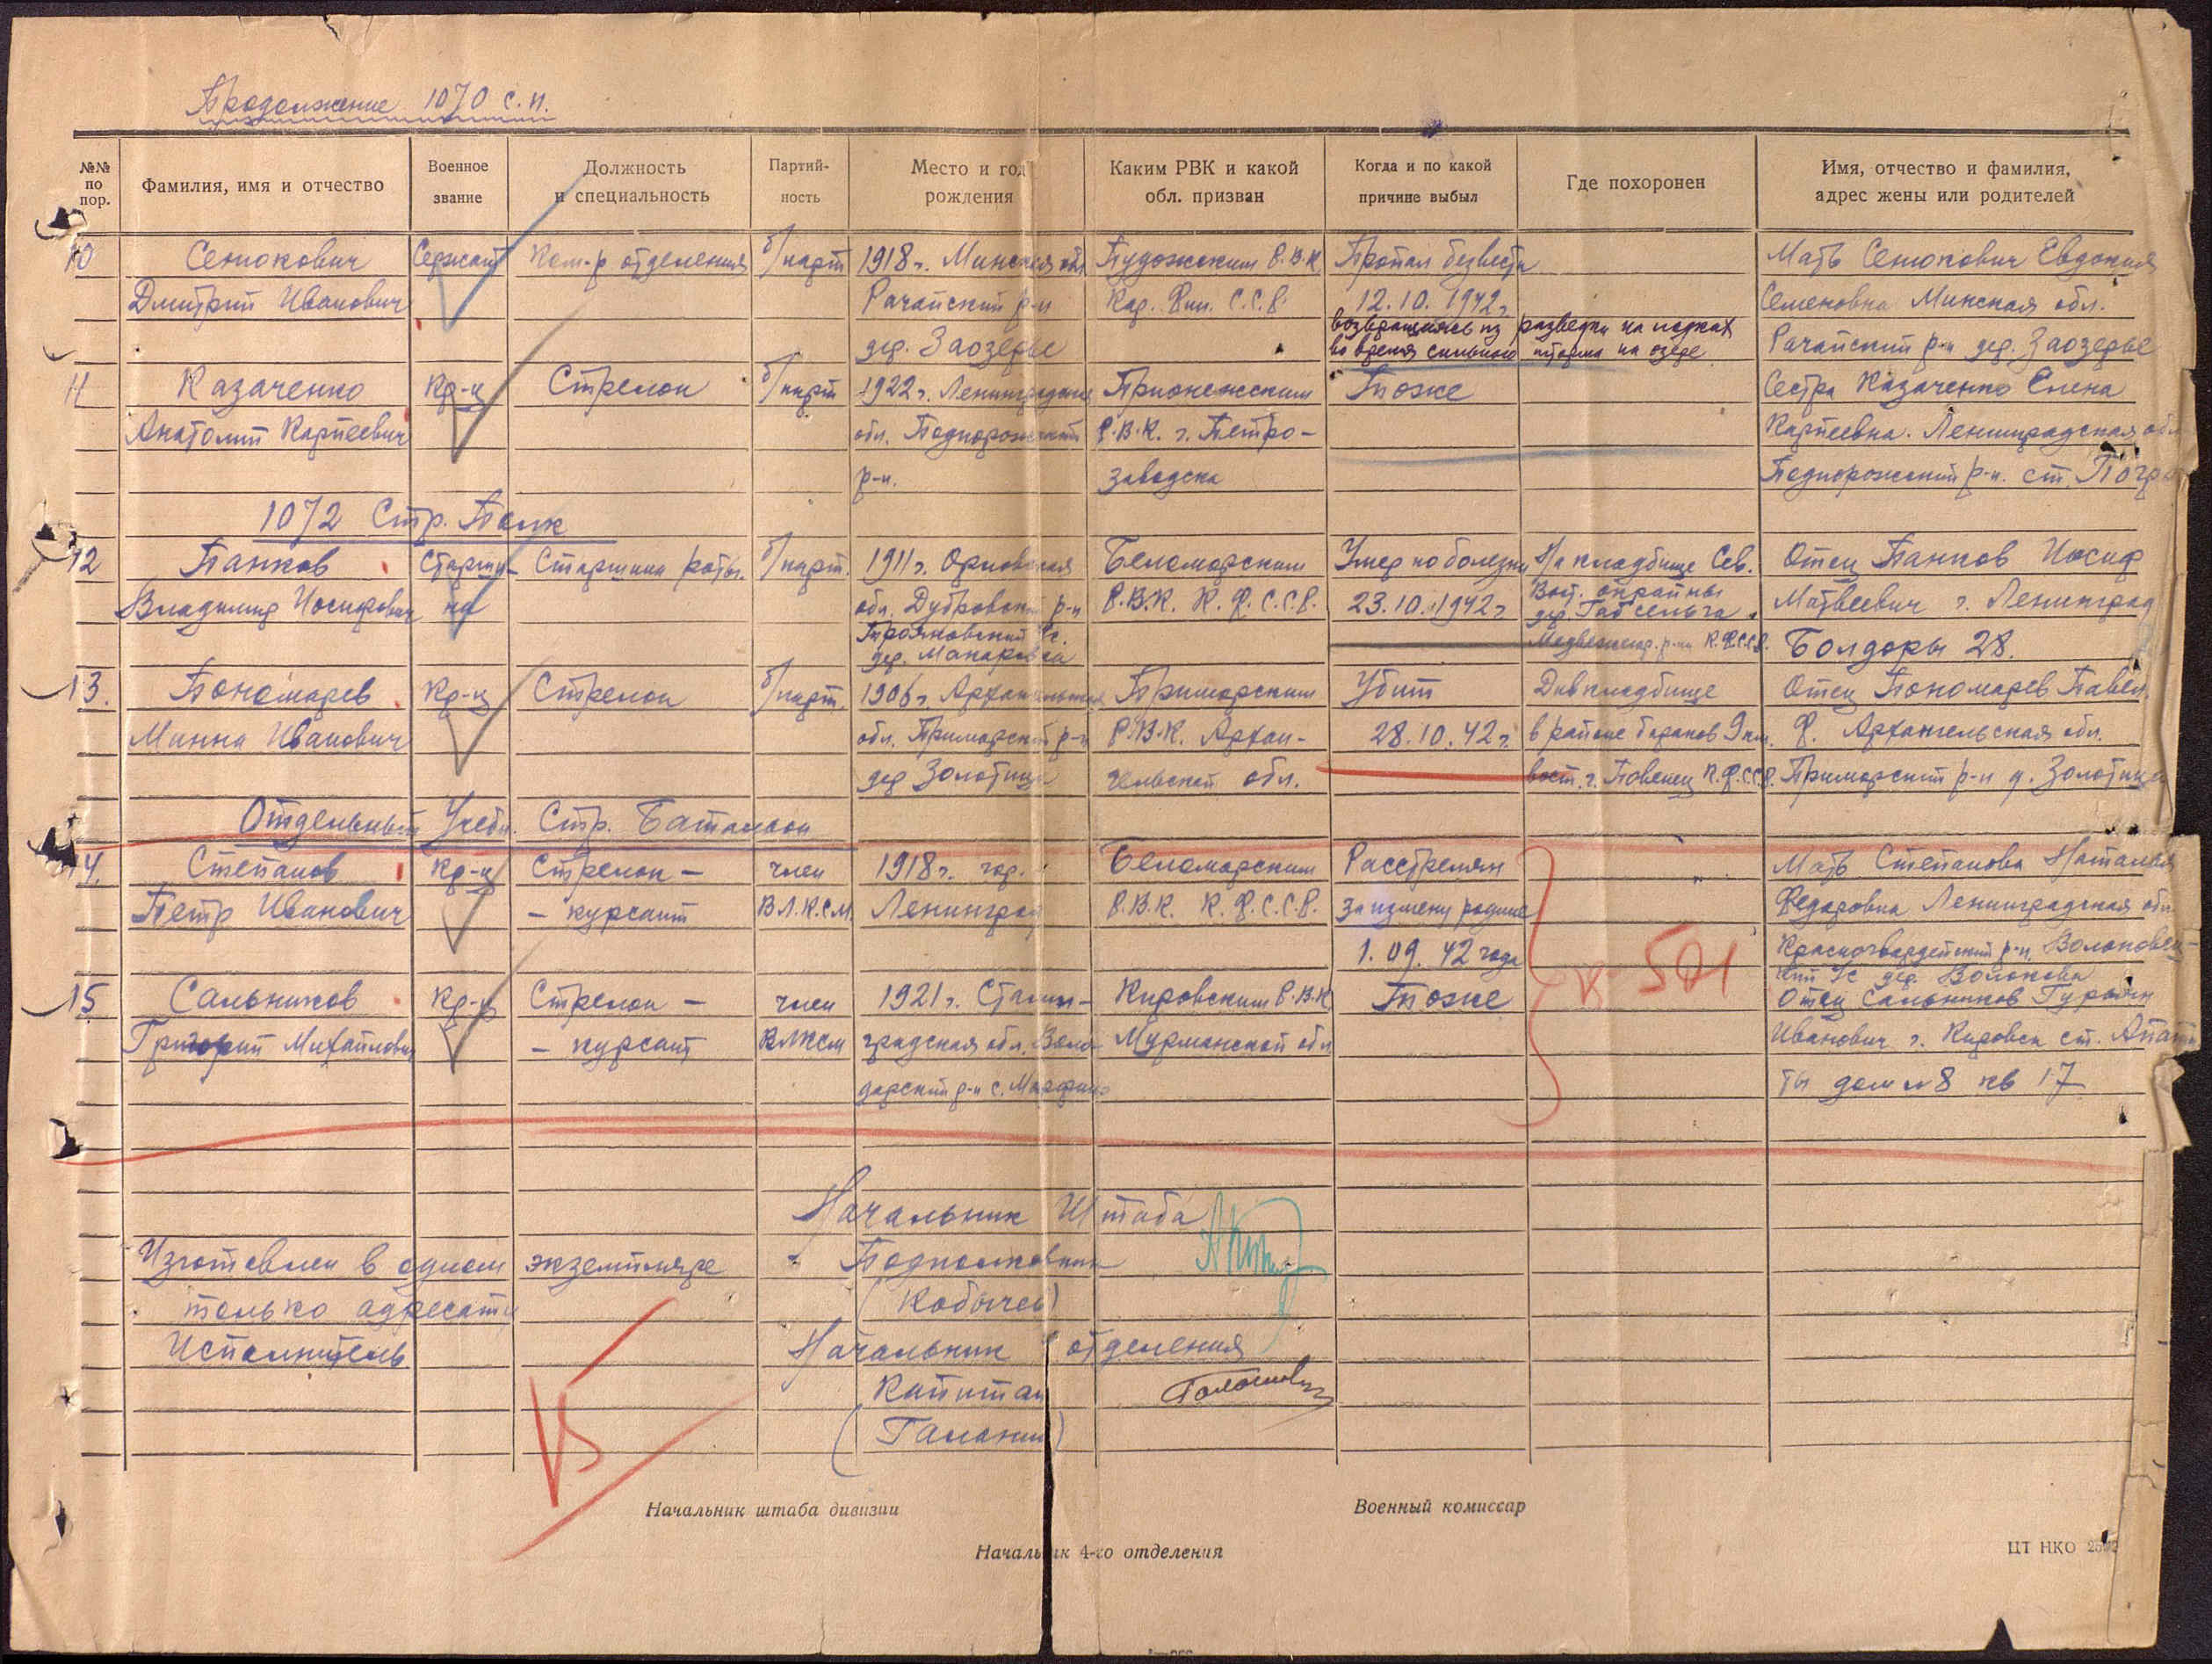 Продолжение 1070 с.п.
№№ по пор.
Фамилия, имя и отчество
Военное звание
Должность и специальность
Партий-ность
Место и год рождения
Каким РВК и какой обл. призван
Когда и по какой причине выбыл
Где похоронен
Имя, отчество и фамилия, адрес жены или родителей
10 Сенюкович Сержант Ком-р отделения б/парт 1918 г. Минская обл Пудожским Р.В.К Пропал безвести Мать Сенюкович Евдокия
Дмитрий Иванович р-н Кар. Фин. С.С.Р. 12.10.1942 г. Семеновна Минская обл.
возвращаясь из разведки на лодках
дер. Заозерье во время сильного шторма на озере р-н дер. Заозерье
11 Казаченко Кр-ц Стрелок б/парт 1922 г. Ленинградская Прионежским Тоже Сестра Казаченко Елена
Анатолий Карпеевич обл. Подпорожский Р.В.К. г. Петро- Карпеевна. Ленинградская обл
р-н. заводска Подпорожский р-н. ст.
1072 Стр. Полк
12 Панков Старши- Старшина роты. б/парт. 1911 г. Орловская Беломорским Умер по болезни На кладбище Сев. Отец Панков Иосиф
Владимир Иосифович на обл. Дубровский р-н Р.В.К. К.Ф.С.С.Р. 23.10.1942 г Вост. окраины Матвеевич г. Ленинград
дер.
с. К.Ф.С.С.Р. 28.
дер.
13. Пономарев Кр-ц Стрелок б/парт. 1906 г. Архангельская Приморским Убит Див кладбище Отец Пономарев Павел
Минна Иванович обл. Приморский р-н Р.В.К. Архан- 28.10.42 г. в районе бараков 9 км. Ф. Архангельская обл.
дер Золотица гельской обл. вост. г. Повенец К.Ф.С.С.Р. Приморский р-н д. Золотица
Отдельный Учебн. Стр. Батальон
14. Степанов Кр-ц Стрелок – член 1918 г. год. Беломорским Расстрелян Мать Степанова Наталья
Петр Иванович – курсант ВЛ.К.С.М Ленинград Р.В.К. К.Ф.С.С.Р. за измену родине Федоровна Ленинградская обл
1.09.42 года Красногвардейский р-н,
К 501
с/с дер.
15 Сальников Кр-ц Стрелок – член 1921 г. Сталин- Кировским Р.В.К Тоже Отец Сальников
Григорий Михайлович – курсант ВЛКСМ градская обл. Мурманской обл Иванович г. Кировск ст. Апати
р-н с. ты дом № 8 кв 17
Начальник Штаба
Изготовлен в одном экземпляре Подполковник
только адресату (Кобычев)
Исполнитель Начальник отделения
Капитан
(Галанин)
Начальник штаба дивизии
Военный комиссар
Начальник 4-го отделения
ЦТ НКО